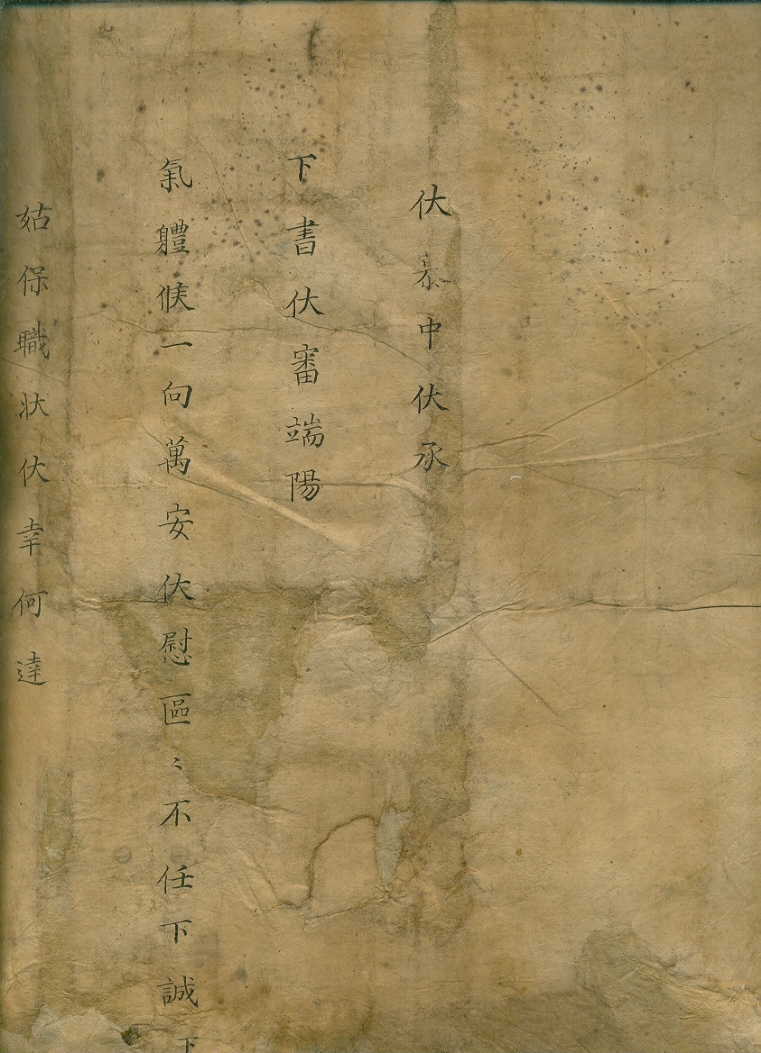 伏中伏承
下書伏審端陽
氣軆候一向萬安伏慰區〻不任下誠下
姑保職狀伏幸何達